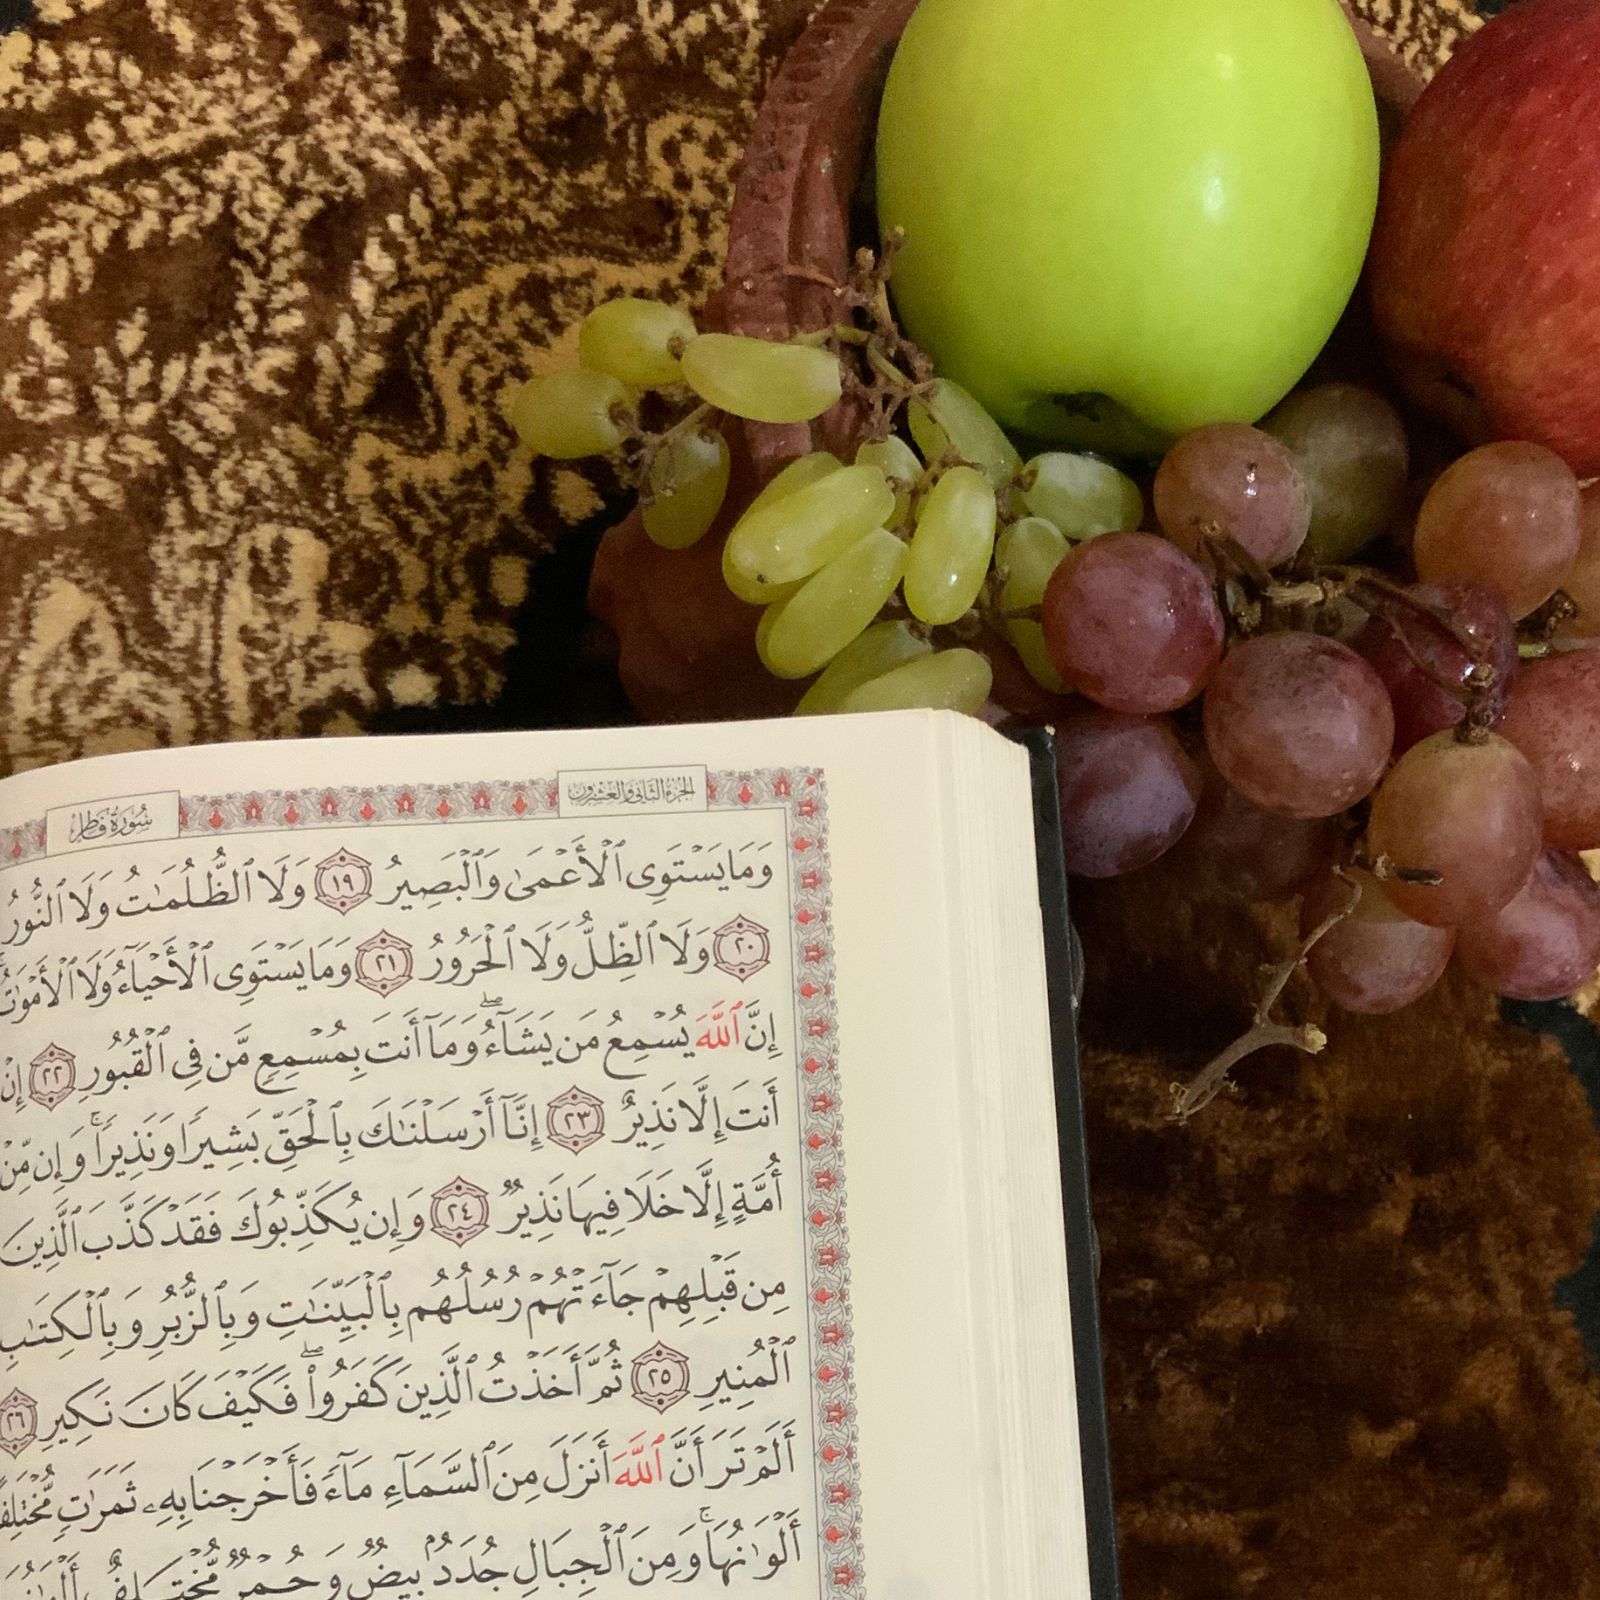 الجزء الثاني والعشرون
سورة فاطر
وَمَا يَسْتَوِى ٱلْأَعْمَىٰ وَٱلْبَصِيرُ ١٩ وَلَا ٱلظُّلُمَـٰتُ وَلَا ٱلنُّورُ
٢٠ وَلَا ٱلظِّلُّ وَلَا ٱلْحَرُورُ ٢١ وَمَا يَسْتَوِى ٱلْأَحْيَآءُ وَلَا ٱلْأَمْوَٰتُ
إِنَّ ٱللَّهَ يُسْمِعُ مَن يَشَآءُ ۖ وَمَآ أَنتَ بِمُسْمِعٍ مَّن فِى ٱلْقُبُورِ ٢٢ إِنْ
أَنتَ إِلَّا نَذِيرٌ ٢٣ إِنَّآ أَرْسَلْنَـٰكَ بِٱلْحَقِّ بَشِيرًا وَنَذِيرًا ۚ وَإِن مِّنْ
أُمَّةٍ إِلَّا خَلَا فِيهَا نَذِيرٌ ٢٤ وَإِن يُكَذِّبُوكَ فَقَدْ كَذَّبَ ٱلَّذِينَ
مِن قَبْلِهِمْ جَآءَتْهُمْ رُسُلُهُم بِٱلْبَيِّنَـٰتِ وَبِٱلزُّبُرِ وَبِٱلْكِتَـٰبِ
ٱلْمُنِيرِ ٢٥ ثُمَّ أَخَذْتُ ٱلَّذِينَ كَفَرُوا۟ ۖ فَكَيْفَ كَانَ نَكِيرِ ٢٦
أَلَمْ تَرَ أَنَّ ٱللَّهَ أَنزَلَ مِنَ ٱلسَّمَآءِ مَآءً فَأَخْرَجْنَا بِهِۦ ثَمَرَٰتٍ مُّخْتَلِفًا
أَلْوَٰنُهَا ۚ وَمِنَ ٱلْجِبَالِ جُدَدٌۢ بِيضٌ وَحُمْرٌ مُّخْتَلِفٌ